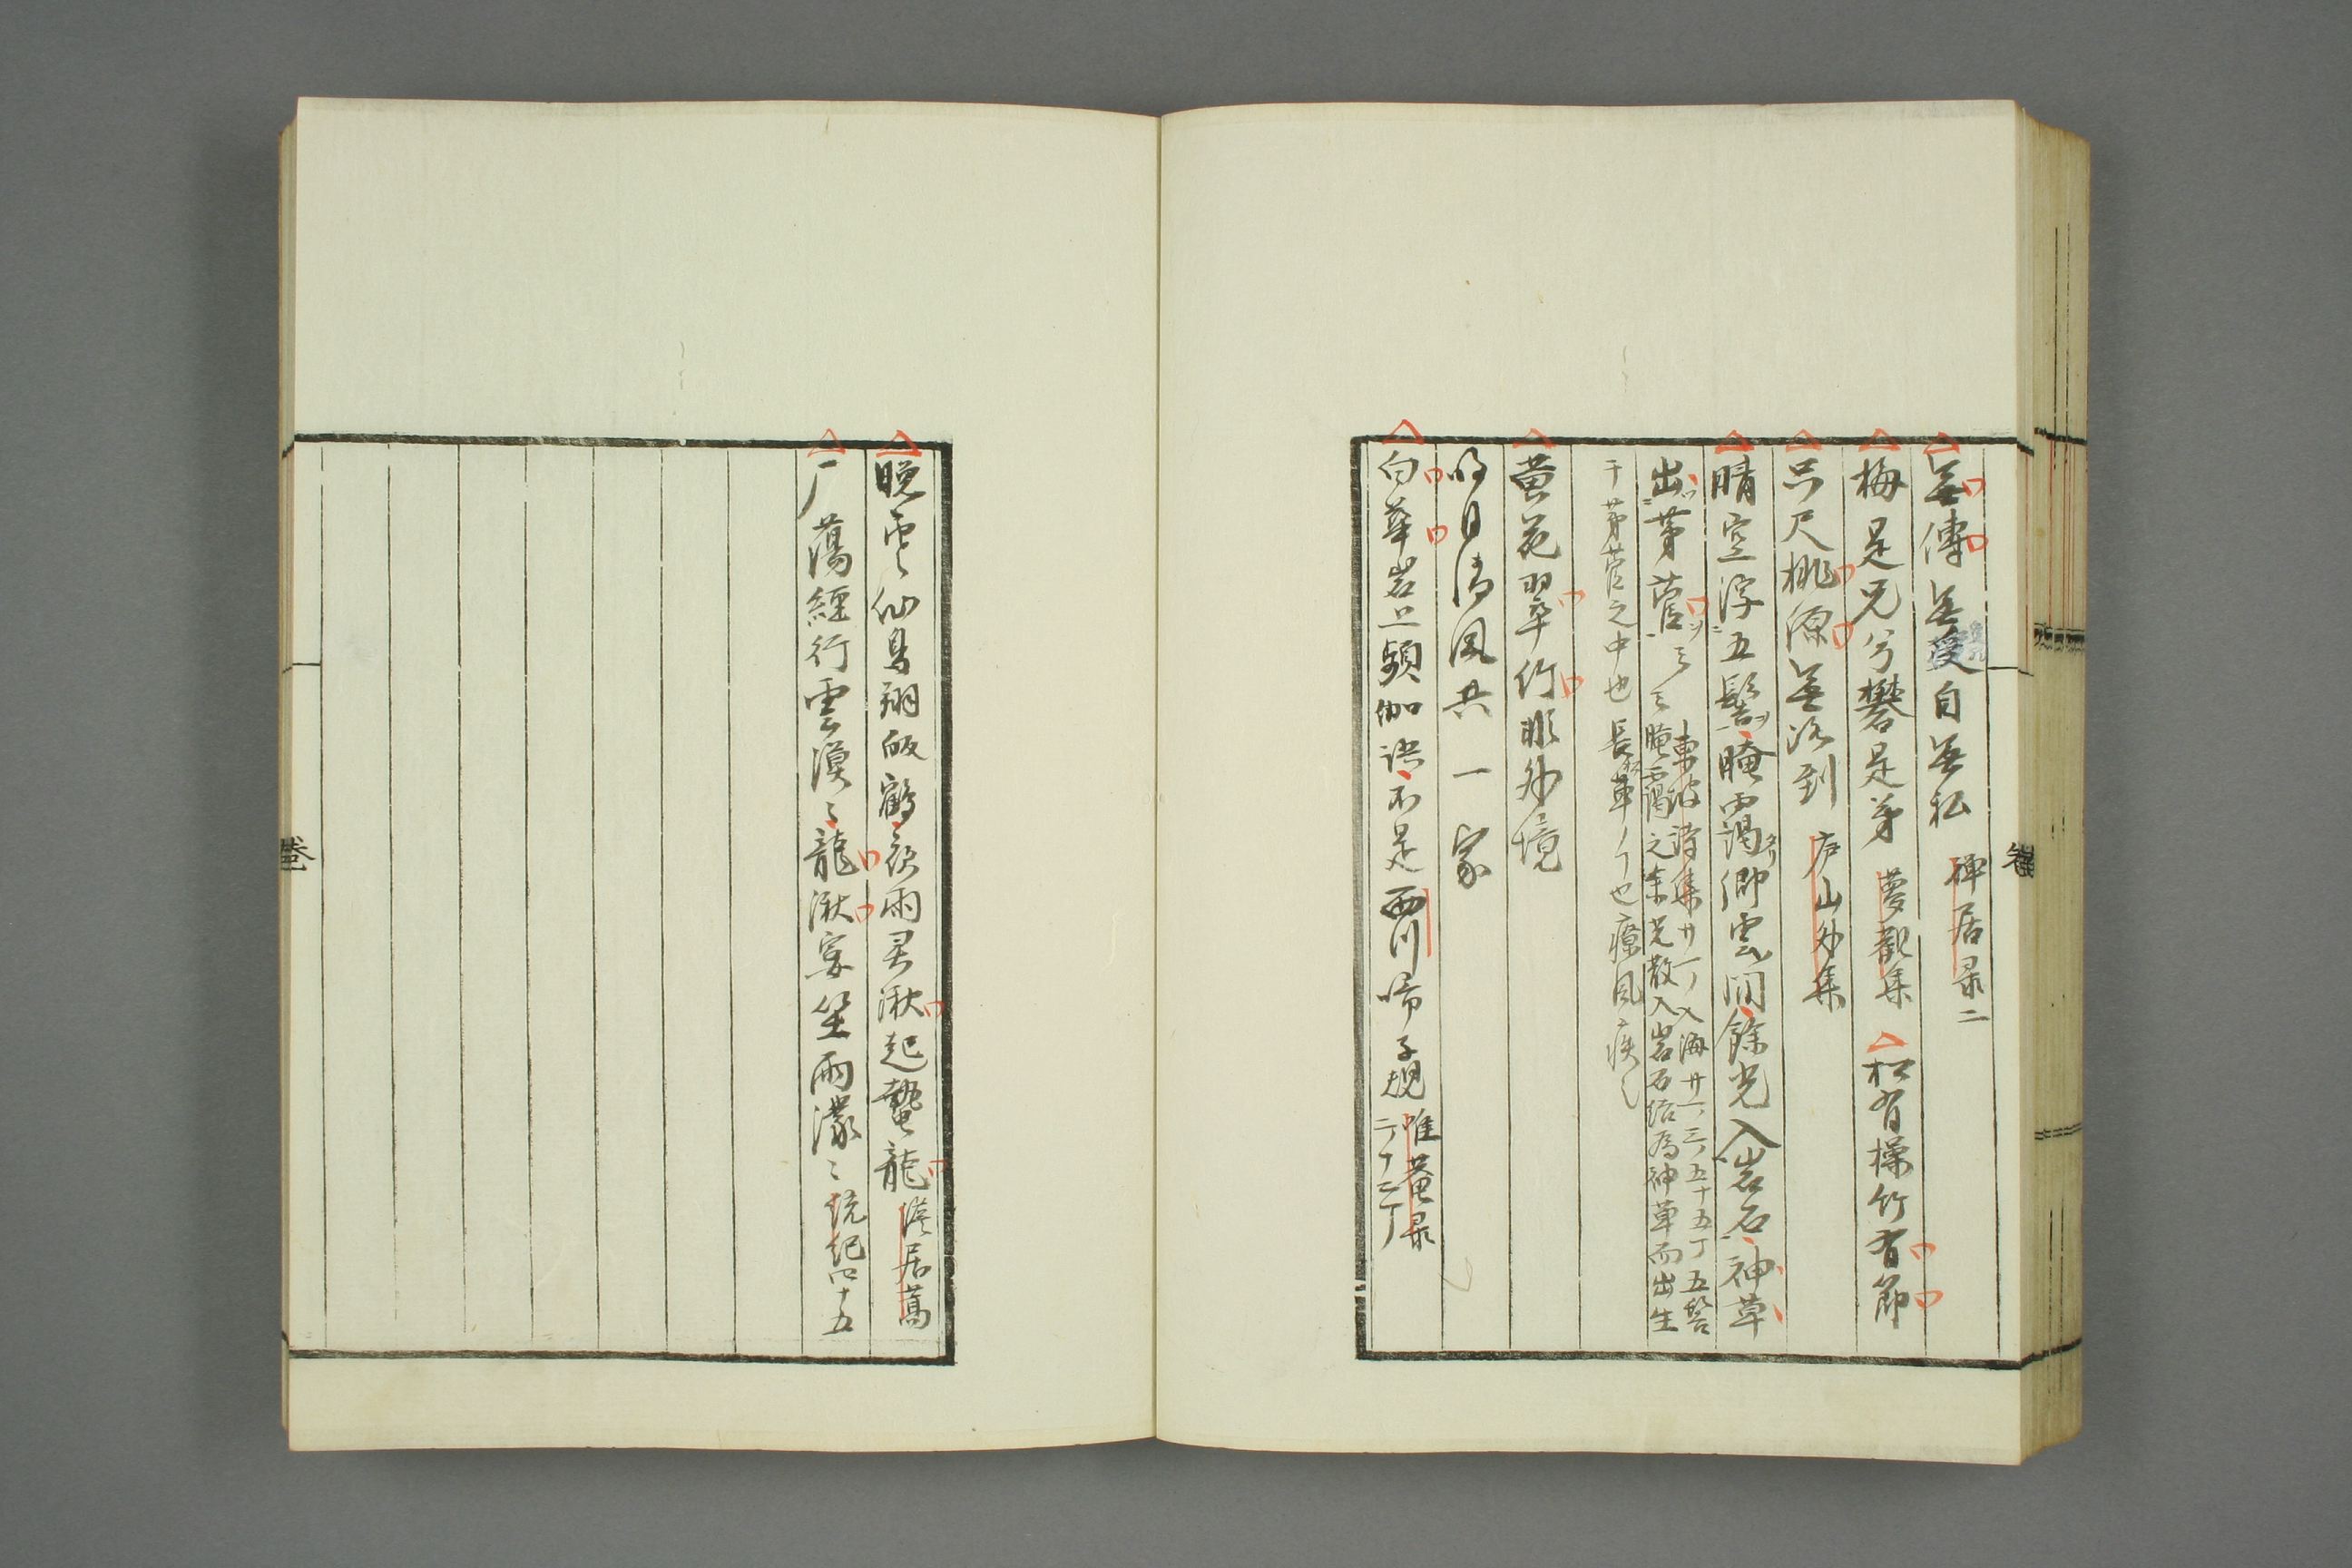 無傳無受自無私 碑居录二
梅是兄兮礬是弟 夢觀集 松有操竹有節
咫尺桃源無路到 庐山外集
晴空浮五髻晻靄卿雲間餘光入岩石神草
出茅菅 東坡詩集廿一丁 入海廿六 三六五十五丁 五髻
晻靄之余光散入岩石结為神草而出生
于茅菅之中也 長松草ノ也療風疾
黄花翠竹非外境
明月清風共一家
白華岩上頻伽语不是西川啼子規 唯菴录
二ノ十三丁
晚雲仙鳥翔皈鶴夜雨灵湫起蟄龍 澹居藁
厂蕩經行雲漠々龍湫宴坐雨濛々 統紀四十五